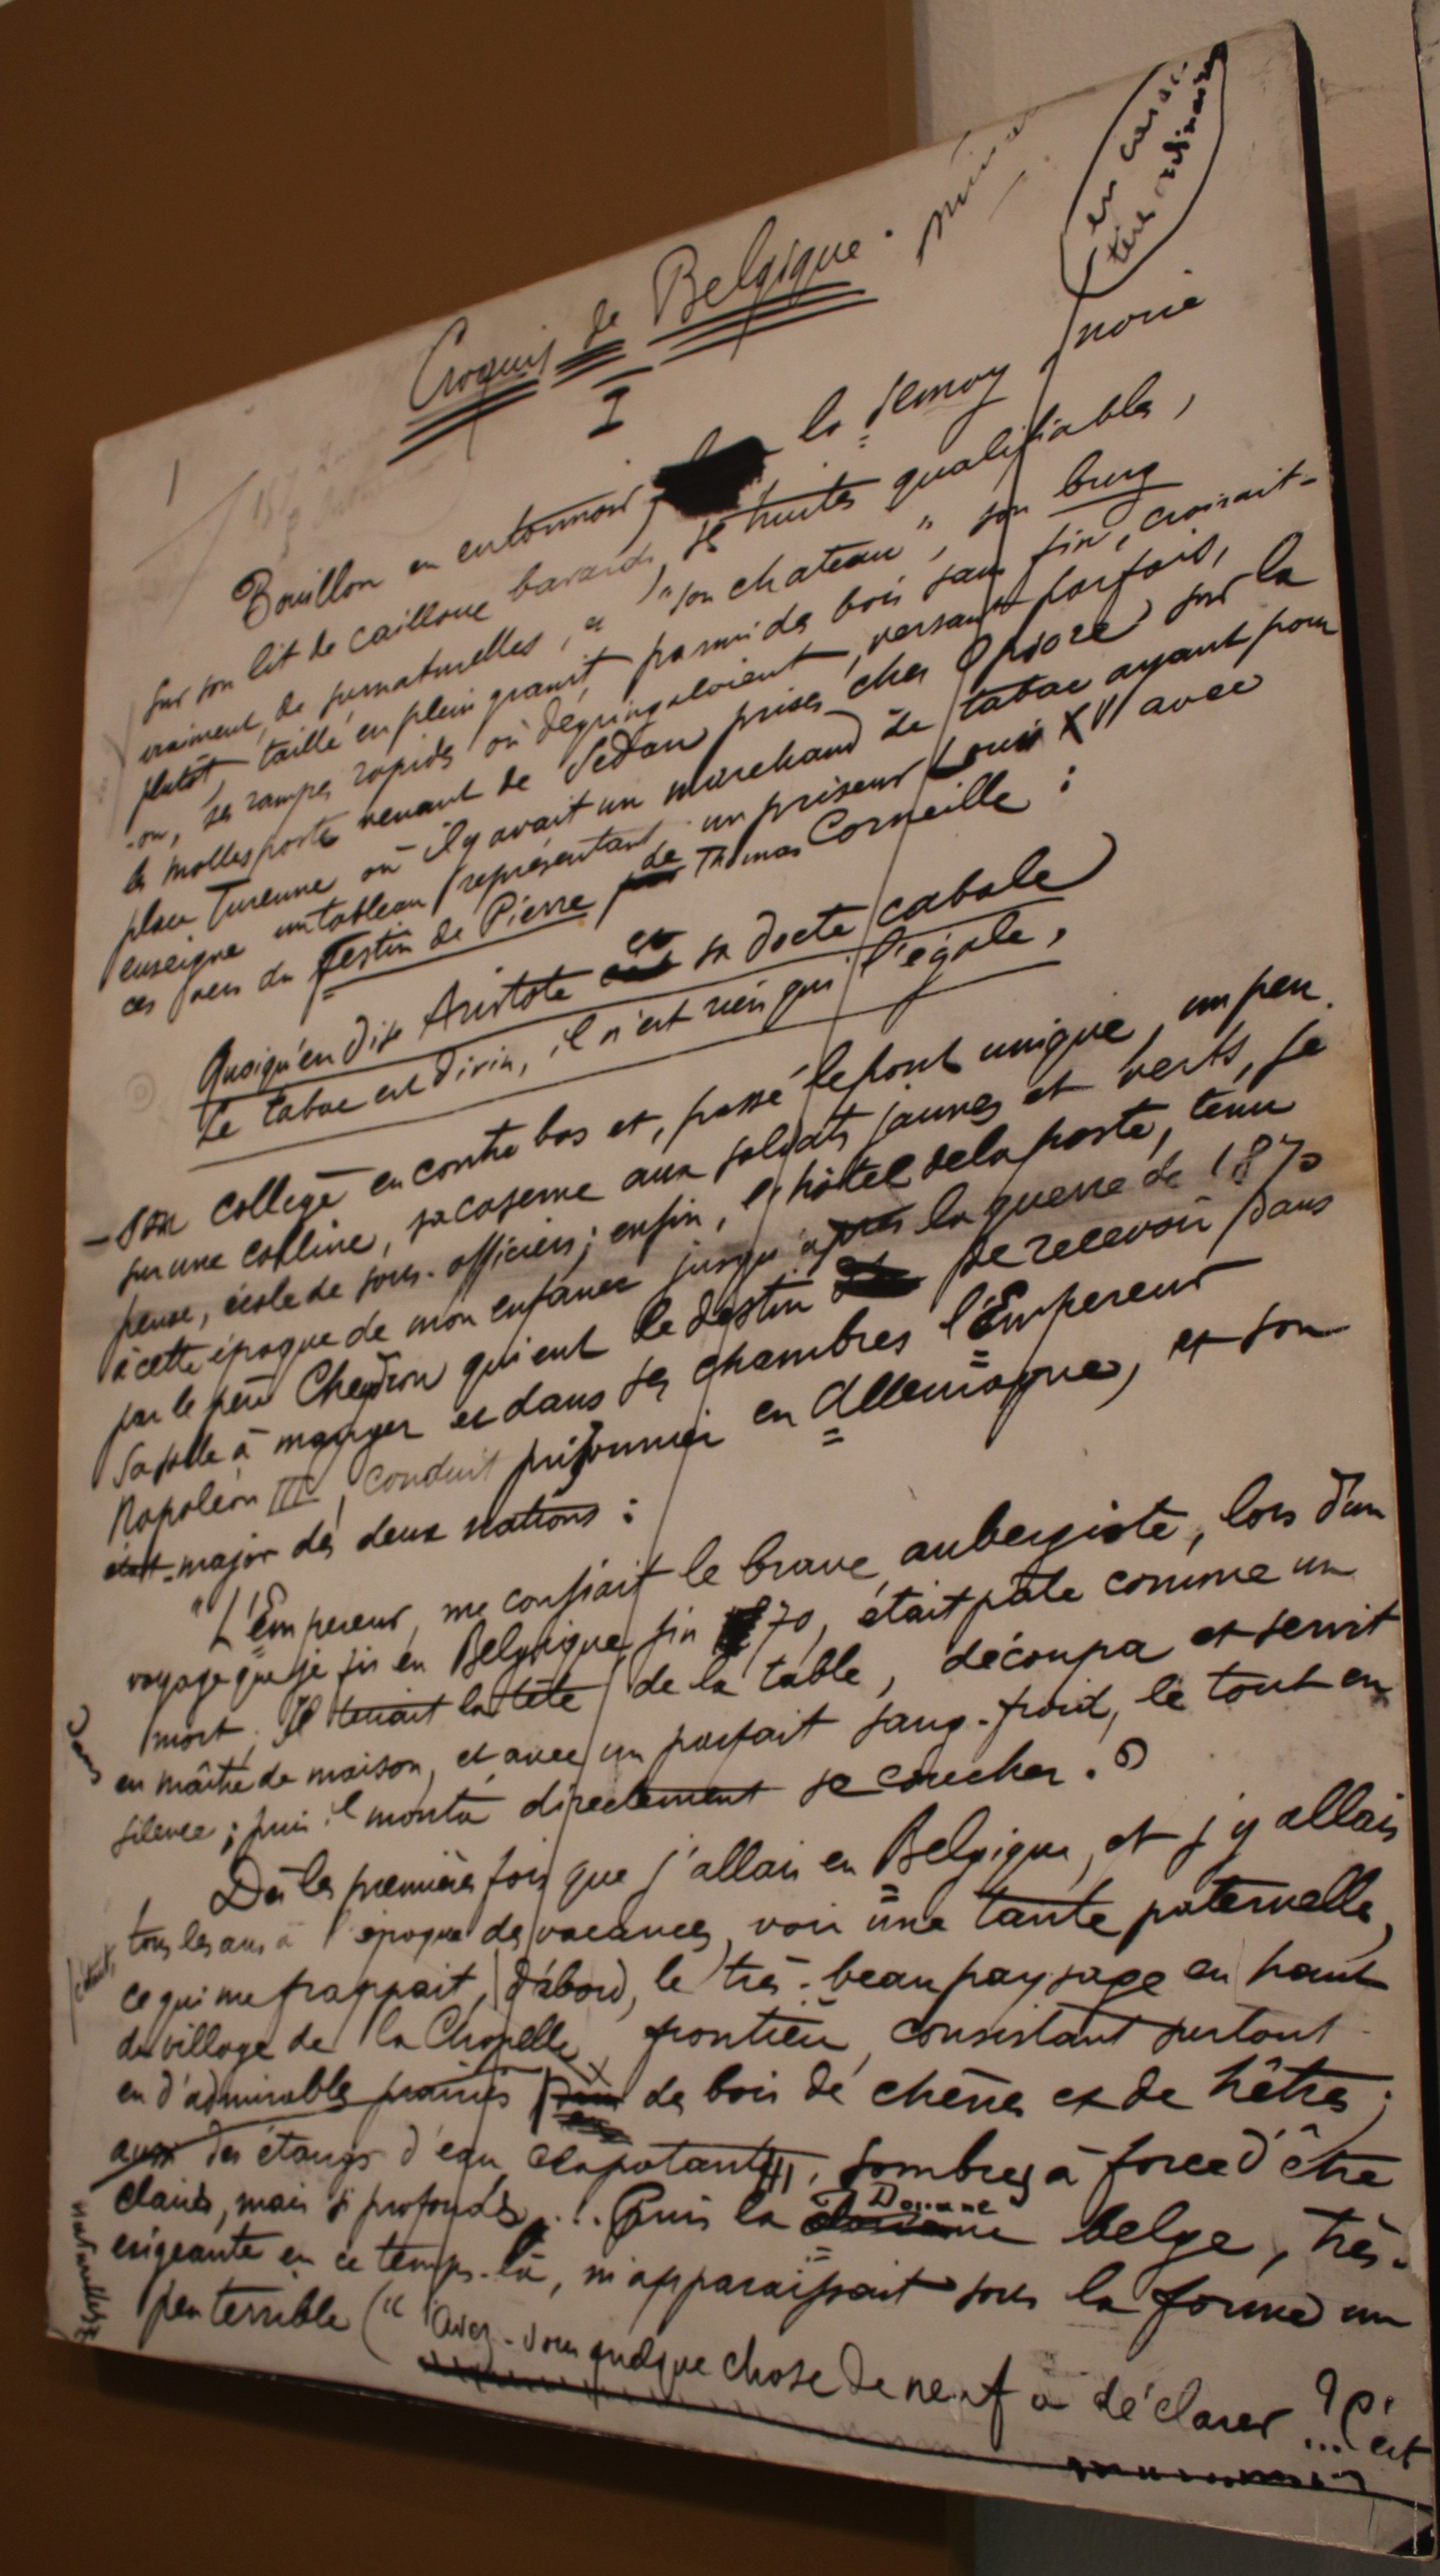 en carac-
tère ordinaire
Croquis de Belgique.
1
I
Bouillon en entonnoir, la Semoy noire
sur son lit de cailloux bavards, ses truites qualifiables,
vraiment, de surnaturelles, et "son chateau", son burg
plutôt, taillé en plein granit, parmi des bois sans fin, croisait-
-on, ses rampes rapides où dégringolaient, versant parfois,
les mallesposte venant de Sedan prises chez Opsore, sur la
place Turenne où il y avait un marchand de tabac ayant pour
enseigne un tableau représentant un priseur Louis XVI avec
ces vers du Festin de Pierre de Thomas Corneille :
Quoiqu'en dise Aristote et sa docte cabale
Le tabac est divin, il n'est rien qui l'égale,
– Son collège en contre bas et, passé le pont unique, un peu
sur une colline, sa caserne aux soldats jaunes et verts, je
pense, école de sous-officiers ; enfin, l'hôtel de la poste, tenu
à cette époque de mon enfance jusqu'après la guerre de 1870
par le père Chaydron qui eut le destin de recevoir dans
sa salle à manger et dans ses chambres l'Empereur
Napoléon III, conduit prisonnier en Allemagne, et son
état-major des deux nations :
"L'Empereur, me confiait le brave aubergiste, lors d'un
voyage que je fis en Belgique, fin 70, était pâle comme un
mort. Il tenait la tête de la table, découpa et servit
en maître de maison, et avec un parfait sang-froid, le tout en
silence ; puis il monta directement se coucher."
Dès les premières fois que j'allais en Belgique, et j'y allais
tous les ans à l'époque des vacances, voir une tante paternelle,
ce qui me frappait, d'abord, le très-beau paysage en haut
du village de la Chapelle, frontière, consistant surtout
en d'admirables prairies de bois de chênes et de hêtres ;
aussi des étangs d'eau clapotante, sombres à force d'être
claires, mais si profondes... Puis la Douane belge, très-
exigeante en ce temps-là, m'apparaissait sous la forme un
peu terrible ("Avez-vous quelque chose de neuf à déclarer ?... C'est